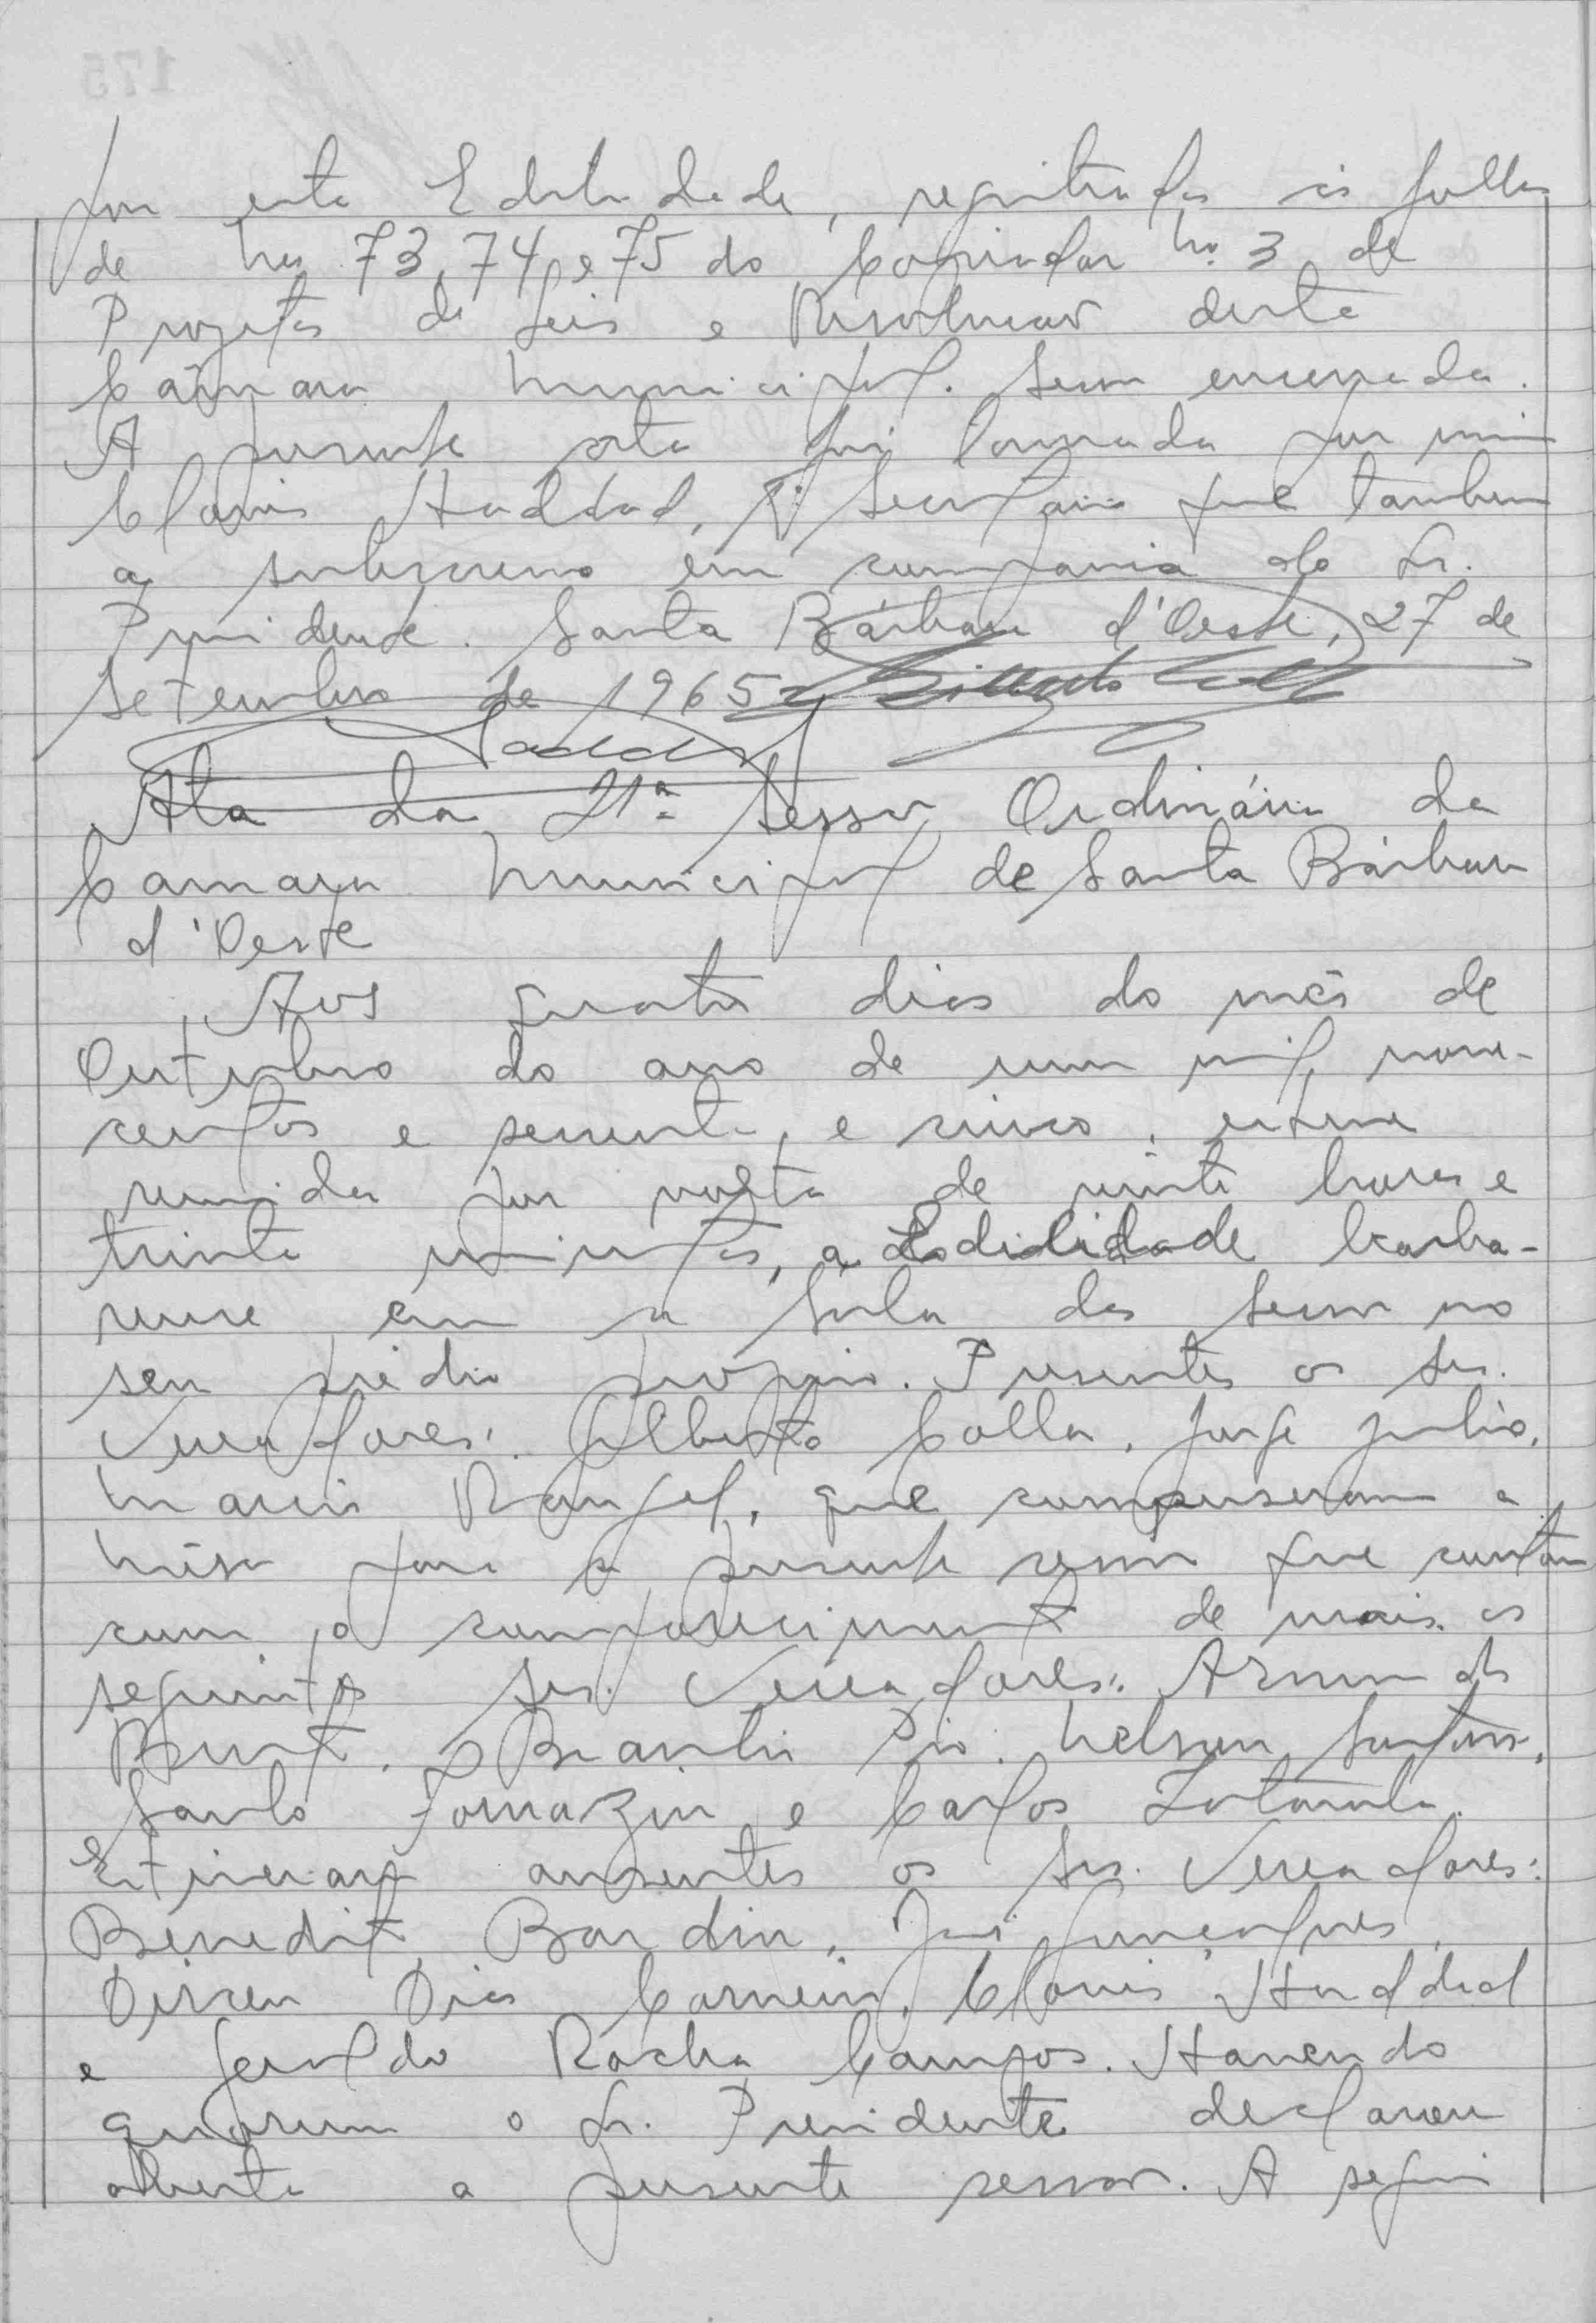 por esta Edilidade, registrados às folhas
de nrs 73, 74, e 75 do Copiador nº 3 de
Projetos de Leis e Resolucao desta
Câmara Municipal. Sessao encerrada.
A presente ata foi lavrada por mim
Clovis Haddad, 1º Secretario que tambem
a subscrevo em companhia do Sr.
Presidente. Santa Bárbara d'Oeste, 27 de
Setembro de 1965
Ata da 21ª Sessao Ordinária da
Camara Municipal de Santa Bárbara
d'Oeste
Aos quatro dias do mês de
Outubro do ano de um mil, nove-
centos e sessenta, e cinco, esteve
reunida por volta de vinte horas e
trinta minutos, a Edilidade barba-
rense em a Sala das Sessao no
seu prédio proprio. Presentes os Srs.
Vereadores: Gilberto Colla, Jorge Julio,
Mario Rangel, que compuseram a
Mêsa para a presente sessao que contou
com o comparecimento de mais os
seguintes Srs. Vereadores: Armando
Brasilio Pio, Nelson
Saulo Fomazin e Carlos
Estiveram ausentes os Srs. Vereadores:
Benedito Bardin, José Gonçalves,
Dirceu Dias Carneiro, Clovis Haddad
e Geraldo Rocha Campos. Havendo
quorum o Sr. Presidente declarou
aberta a presente sessao. A seguir